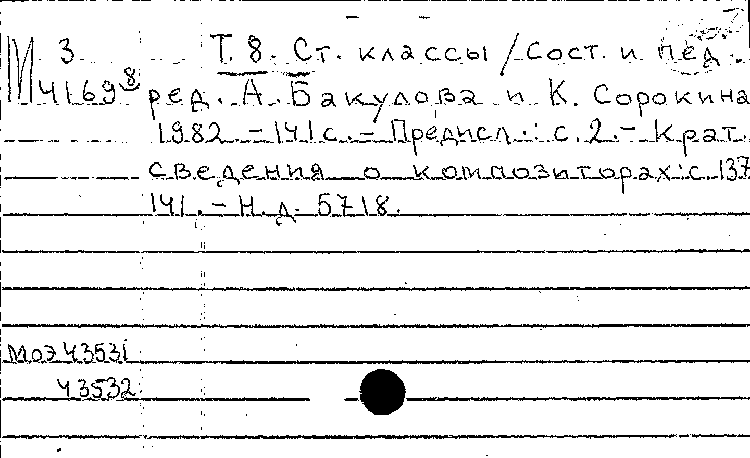 М 3
4169⁸
Т. 8. Ст. классы / Сост. и пед.
ред. А. Бакулова и К. Сорокина
1982. - 141 с. - Предисл.: с. 2. - Крат.
сведения о композиторах: с. 137
141. - Н. д. 5718.
МОЭ 43531
43532